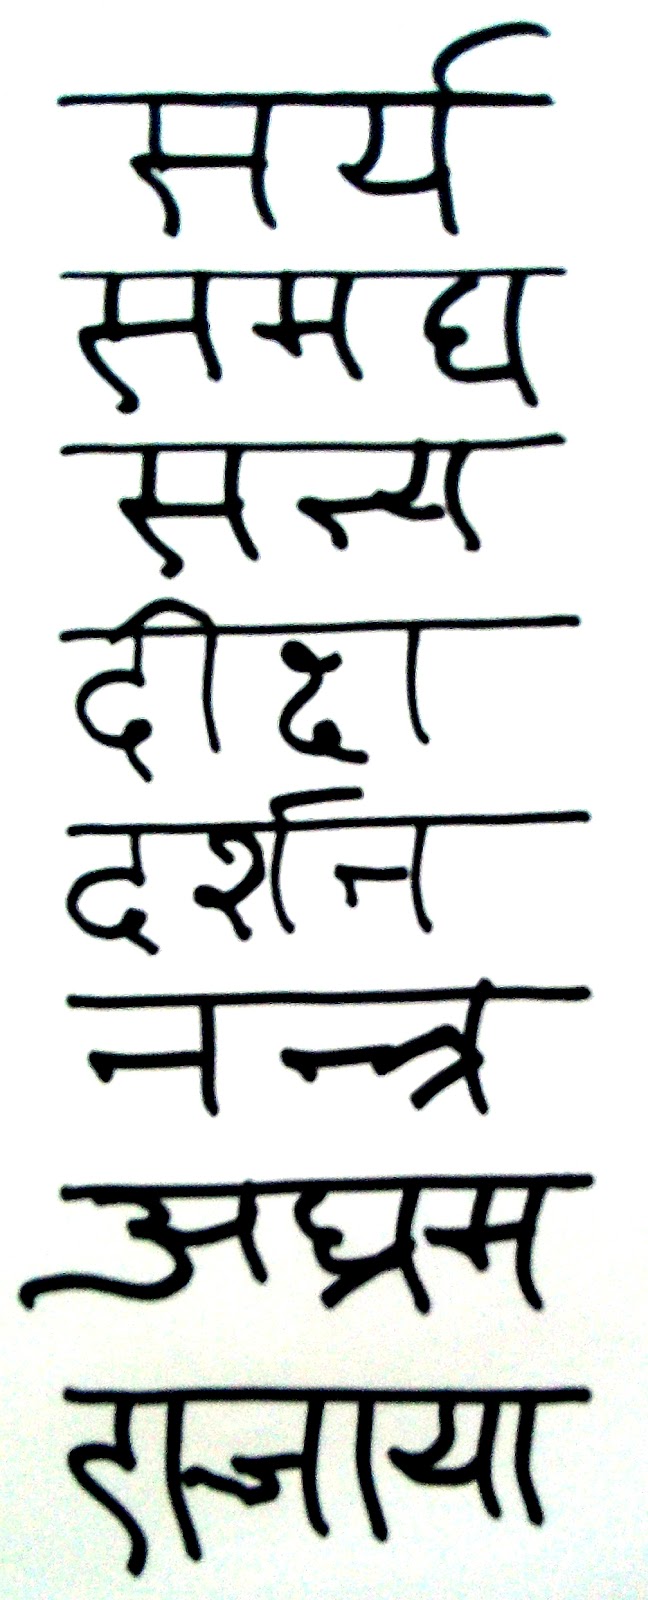 सर्य
समघ
सन्य
दीक्षा
दर्शन
नन्त्र
अघ्रम
राजाया